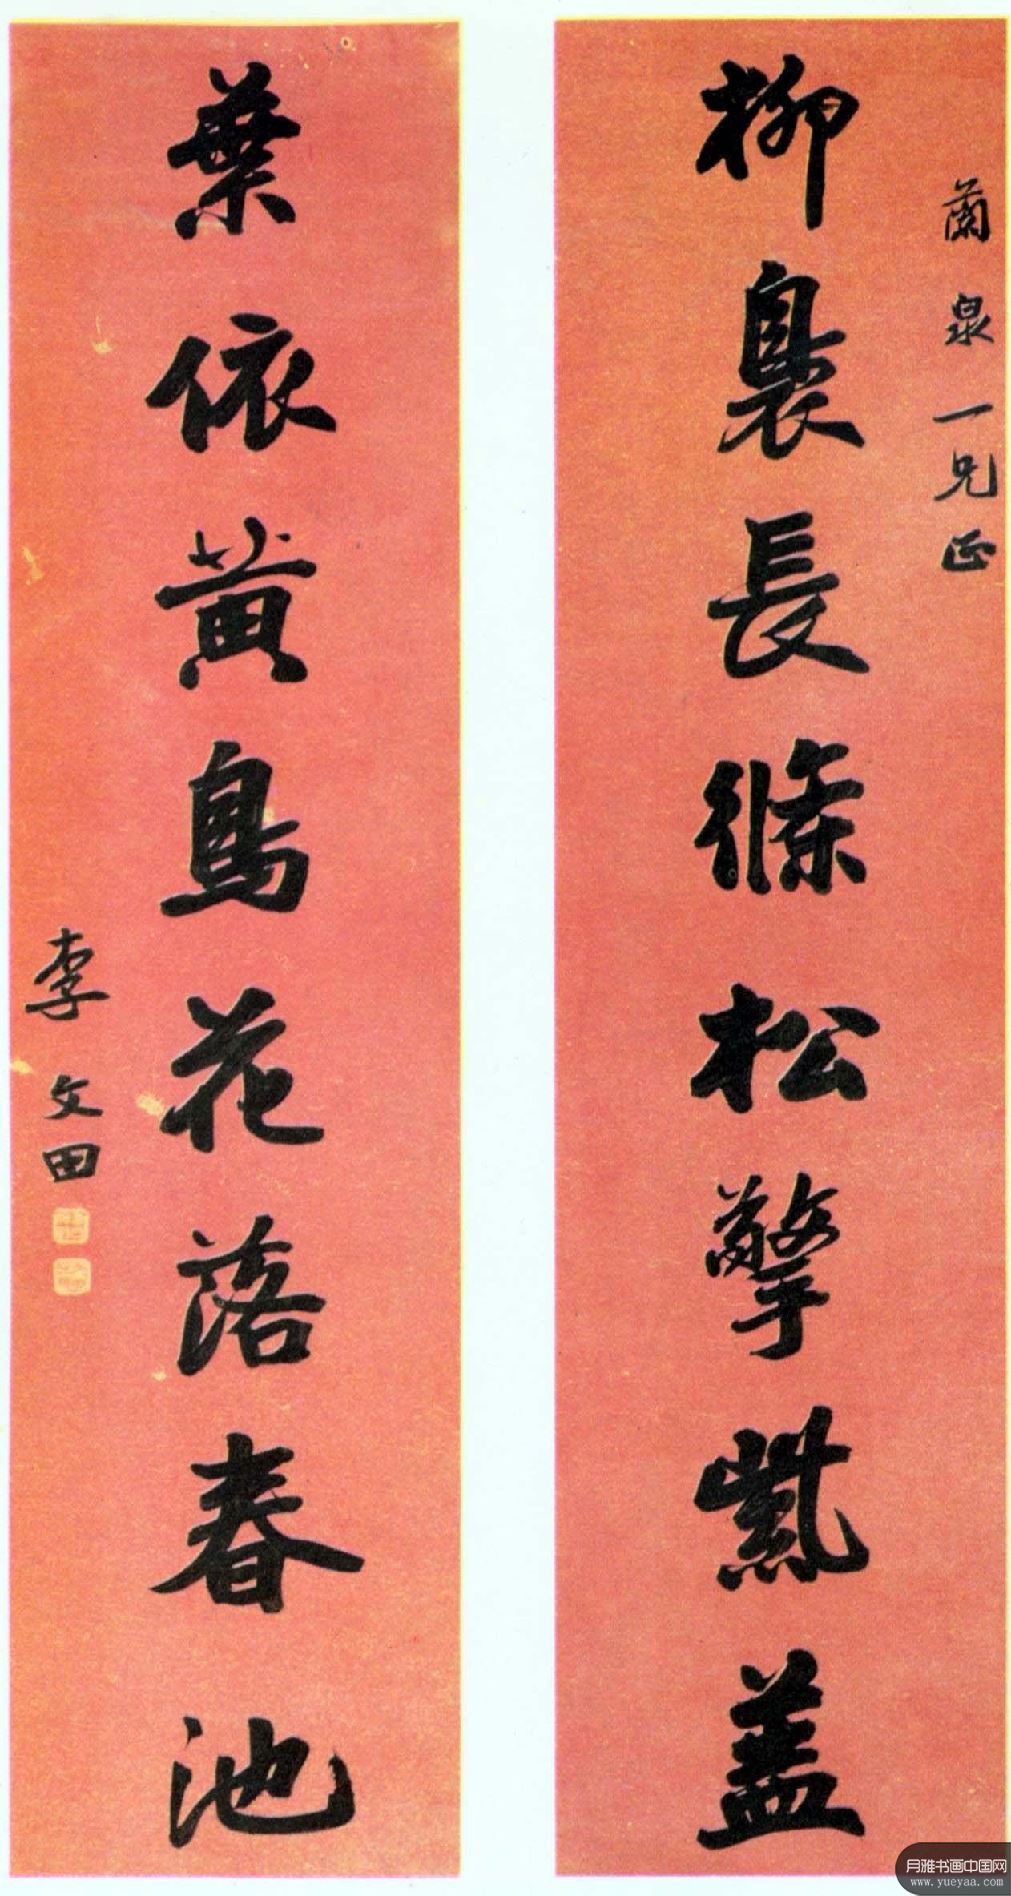 蘭泉一兄正
柳裊長條松擎紫蓋
葉依黃鳥花落春池
李文田
月雅书画中国网
www.yueyaa.com